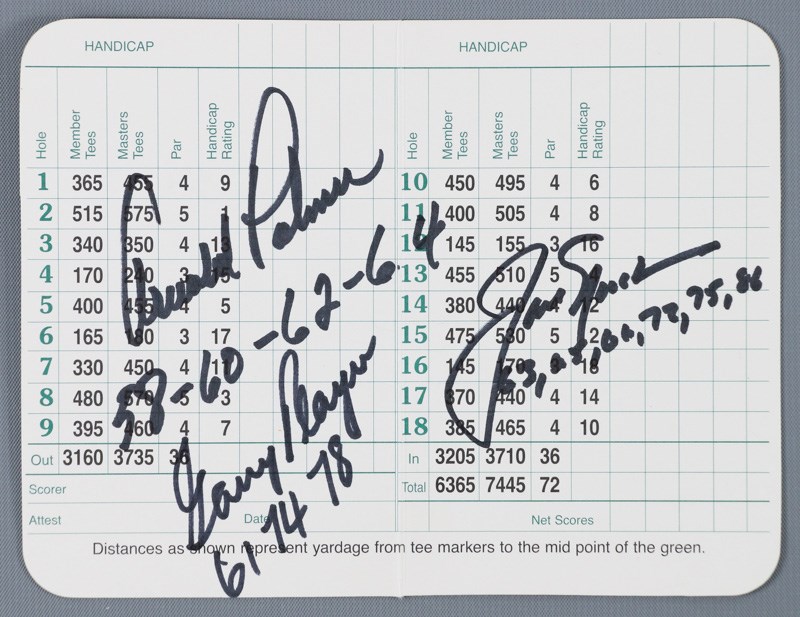 HANDICAP HANDICAP
Hole Member Tees Masters Tees Par Handicap Rating Hole Member Tees Masters Tees Par Handicap Rating
1 365 455 4 9 10 450 495 4 6
2 515 575 5 1 11 400 505 4 8
3 340 350 4 13 12 145 155 3 16
4 170 240 3 15 13 455 510 5 4
5 400 455 4 5 14 380 440 4 12
6 165 180 3 17 15 475 530 5 2
7 330 450 4 11 16 145 170 3 18
8 480 570 5 3 17 370 440 4 14
9 395 460 4 7 18 385 465 4 10
Out 3160 3735 36 In 3205 3710 36
Total 6365 7445 72
Scorer
Attest Date Net Scores
Distances as shown represent yardage from tee markers to the mid point of the green.
Arnold Palmer
58-60-62-64
Gary Player
61 74 78
Jack Nicklaus
63, 65, 66, 72, 75, 86